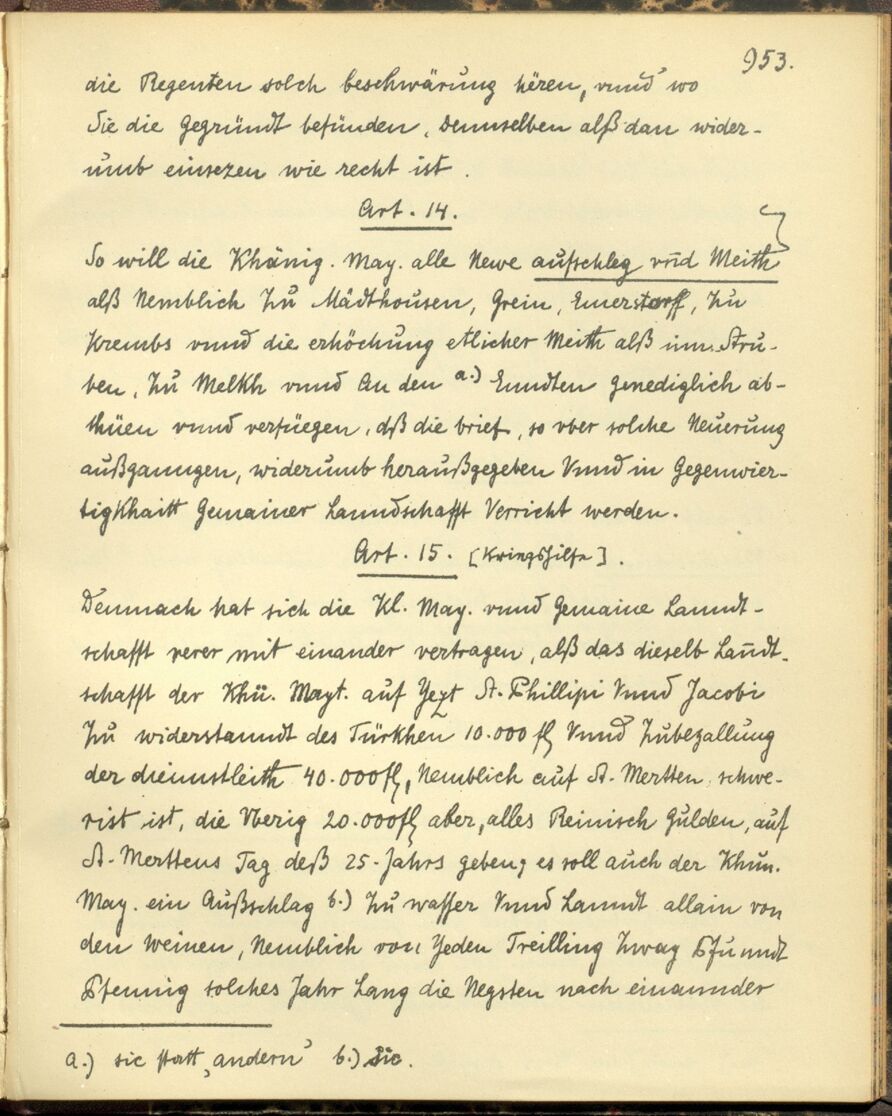 953.
die Regenten solch beschwärung hëren, vnnd wo
Sie die gegründt befünden, demselben alß dan wider-
umb einsezen wie recht ist.
Art. 14.
So will die Khänig. May. alle Newe aufschleg vnd Meith
alß Nemblich Zu Mädthousen, Grein, Emerstorff, Zu
Krembs vnnd die erhöchung etlicher Meith alß inn Stru-
ben, Zu Melkh vnnd An den a.) Enndten genediglich ab-
thüen vnnd verfüegen, dß die brief, so vber solche Neuerung
außganngen, widerumb heraußgegeben Vnnd in Gegenwier-
tigKhaitt Gemainer Lanndschafft Verricht werden.
Art. 15. [Kriegshilfe].
Demnach hat sich die Kl. May. vnnd Gemaine Lanndt-
schafft verer mit einander vertragen, alß das dieselb Landt-
schafft der Khü. Mayt. auf Yezt St. Phillipi Vnnd Jacobi
Zu widerstanndt des Türkhen 10.000 fl Vnnd Zubezallung
der diennstleith 40.000 fl, Nemblich auf St. Mertten schwe-
rist ist, die Vberig 20.000 fl aber, alles Reinisch Gulden, auf
St. Merttens Tag deß 25-Jahrs geben; es soll auch der Khun.
May. ein Außschlag b.) Zu wasser Vnnd Lanndt allain von
den Weinen, Nemblich von Yeden Treilling Zway Pfunndt
Pfennig solches Jahr Lang die Negsten nach einannder
a.) sic statt „andern" b.) Sic.